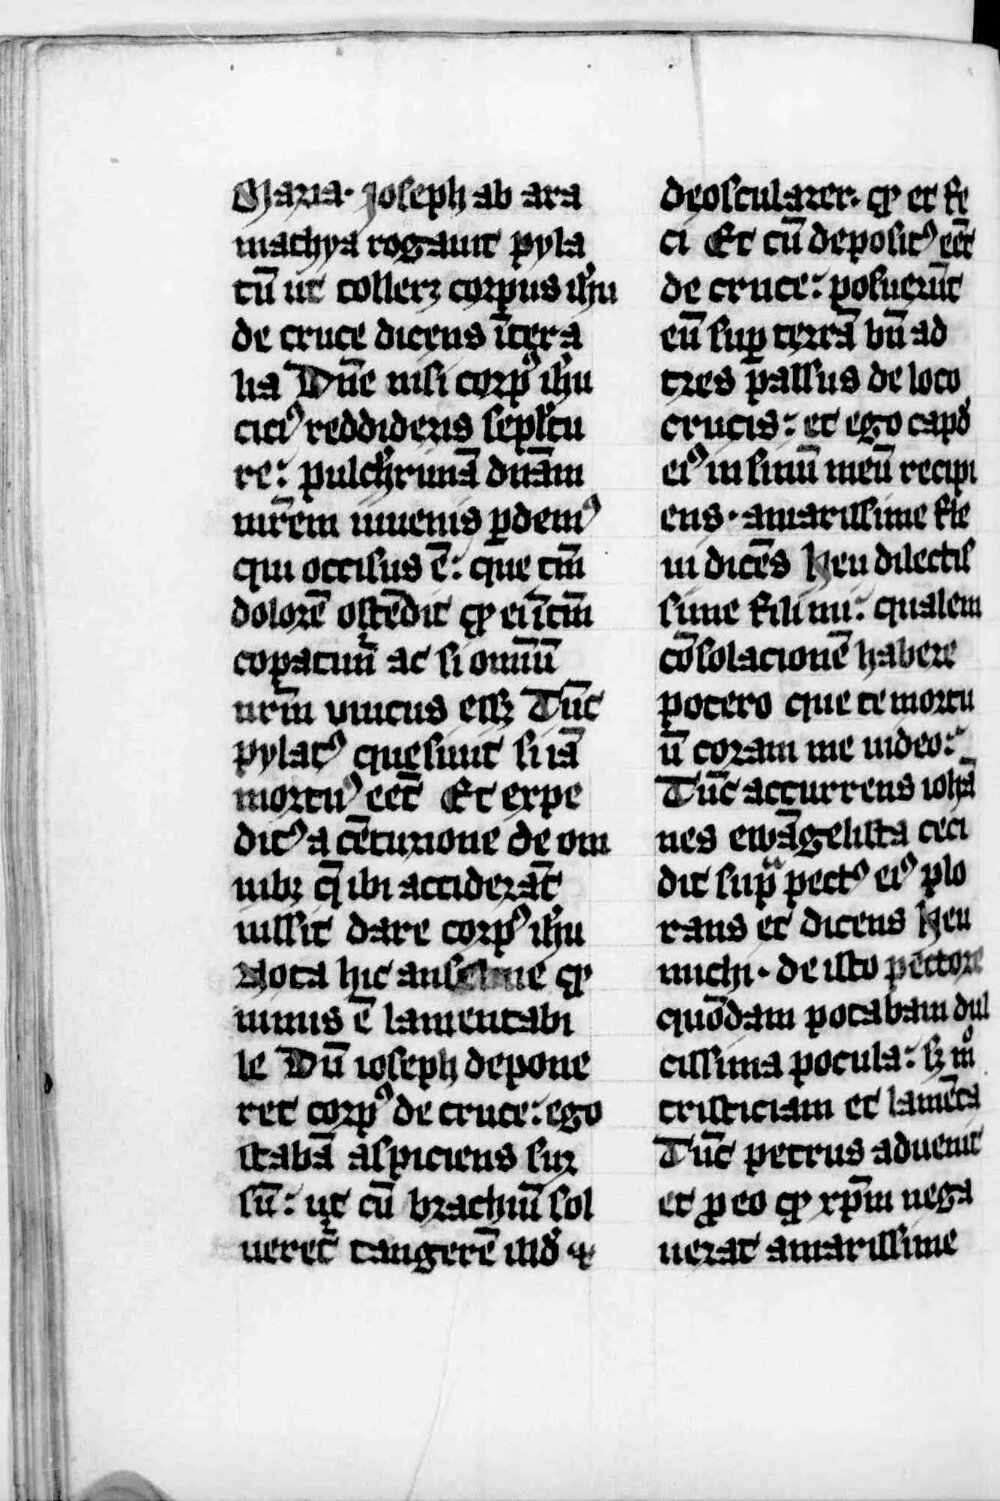 Maria. Joseph ab ara
mathya rogauit pyla
tū ut tollerꝫ corpus ihū
de cruce dicens īter a
lia Dn̄e nisi corpꝰ ihū
citiꝰ reddideris sepl̄tu
re: pulch̄rimā dn̄am
nr̄em inuenis ꝑdemꝰ
qui occisus ē: que tm̄
dolorē oſtēdit ꝙ ei īcm̄
copatim̄ ac si omniū
nr̄m vnicus eſſꝫ Tūc
pylatꝰ quesiuit si iā
mortuꝰ eēt Et expe
ditꝰ a cēturione de om
nibꝫ q̄ ibi acciderāt
iussit dare corpꝰ ihū
Nota hic anselme ꝙ
nimis ē lamentabi
le Dū ioseph depone
ret corpꝰ de cruce: ego
stabā aspiciens sur
sū: ut cū brachiū sol
ueret̄ tangerē illd̓ ⁊
deoscularer. ꝙ et fe
ci Et cū depositꝰ eēt
de cruce: posuerūt
eū suꝑ terrā vn̄ ad
tres passus de loco
crucis: et ego capd̓
eiꝰ in sinū meū recipi
ens. amarissime fle
ui dicēs Heu dilectis
sime fili mi: qualem
cōsolacionē habere
potero que te mortu
ū coram me uideo:
Tūc accurrens iohā
nes ewāgelista ceci
dit supͣ pectꝰ eiꝰ plo
rans et dicens Heu
michi. de isto pectore
quōdam potabam dul
cissima pocula: sꝫ mͦ
tristiciam et lamēta
Tūc petrus aduenit
et ꝓ eo ꝙ xp̄m nega
uerat amarissime